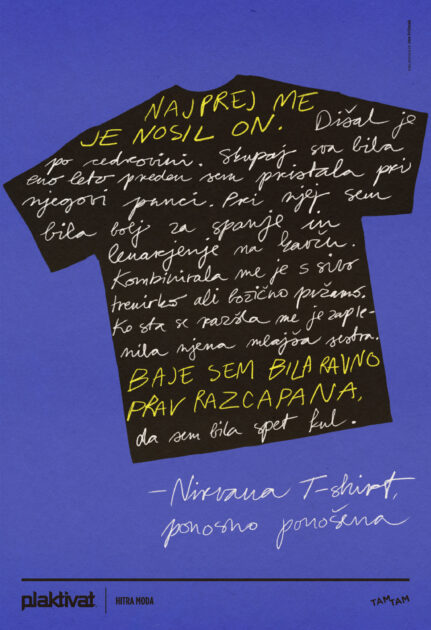 NAJPREJ ME
JE NOSIL ON. Dišal je
po cedrovini. Skupaj sva bila
eno leto preden sem pristala pri
njegovi punci. Pri njej sem
bila bolj za spanje in
lenarjenje na kavču.
Kombinirala me je s sivo
trenirko ali božično pižamo.
Ko sta se razšla me je zaple-
nila njena mlajša sestra.
BAJE SEM BILA RAVNO
PRAV RAZCAPANA,
da sem bila spet kul.
–Nirvana T-shirt,
ponosno ponošena
plaktivat HITRA MODA
TAM TAM